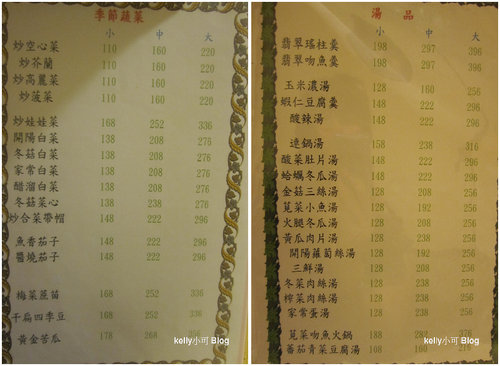 季節蔬菜
小 中 大
炒空心菜 110 160 220
炒芥蘭 110 160 220
炒高麗菜 110 160 220
炒菠菜 110 160 220
炒娃娃菜 168 252 336
開陽白菜 138 208 276
冬菇白菜 138 208 276
家常白菜 138 208 276
醋溜白菜 138 208 276
冬菇菜心 138 238 276
炒合菜帶帽 148 222 296
魚香茄子 148 222 296
醬燒茄子 148 222 296
梅菜蓖苗 168 252 336
干扁四季豆 168 252 336
黃金苦瓜 178 268 356
kelly小可 Blog
湯 品
小 中 大
翡翠瑤柱羹 198 297 396
翡翠吻魚羹 198 297 396
玉米濃湯 128 160 256
蝦仁豆腐羹 148 222 296
酸辣湯 148 222 296
連鍋湯 158 238 316
酸菜肚片湯 148 222 296
蛤蠣冬瓜湯 148 222 296
金菇三絲湯 128 208 256
莧菜小魚湯 128 192 256
火腿冬瓜湯 128 208 256
黃瓜肉片湯 128 238 256
開陽蘿蔔絲湯 128 238 256
三鮮湯 128 208 256
冬菜肉絲湯 128 238 256
榨菜肉絲湯 128 238 256
家常蛋湯 128 238 256
莧菜吻魚火鍋 188 282 376
蕃茄青菜豆腐湯 108 160 276
kelly小可 Blog